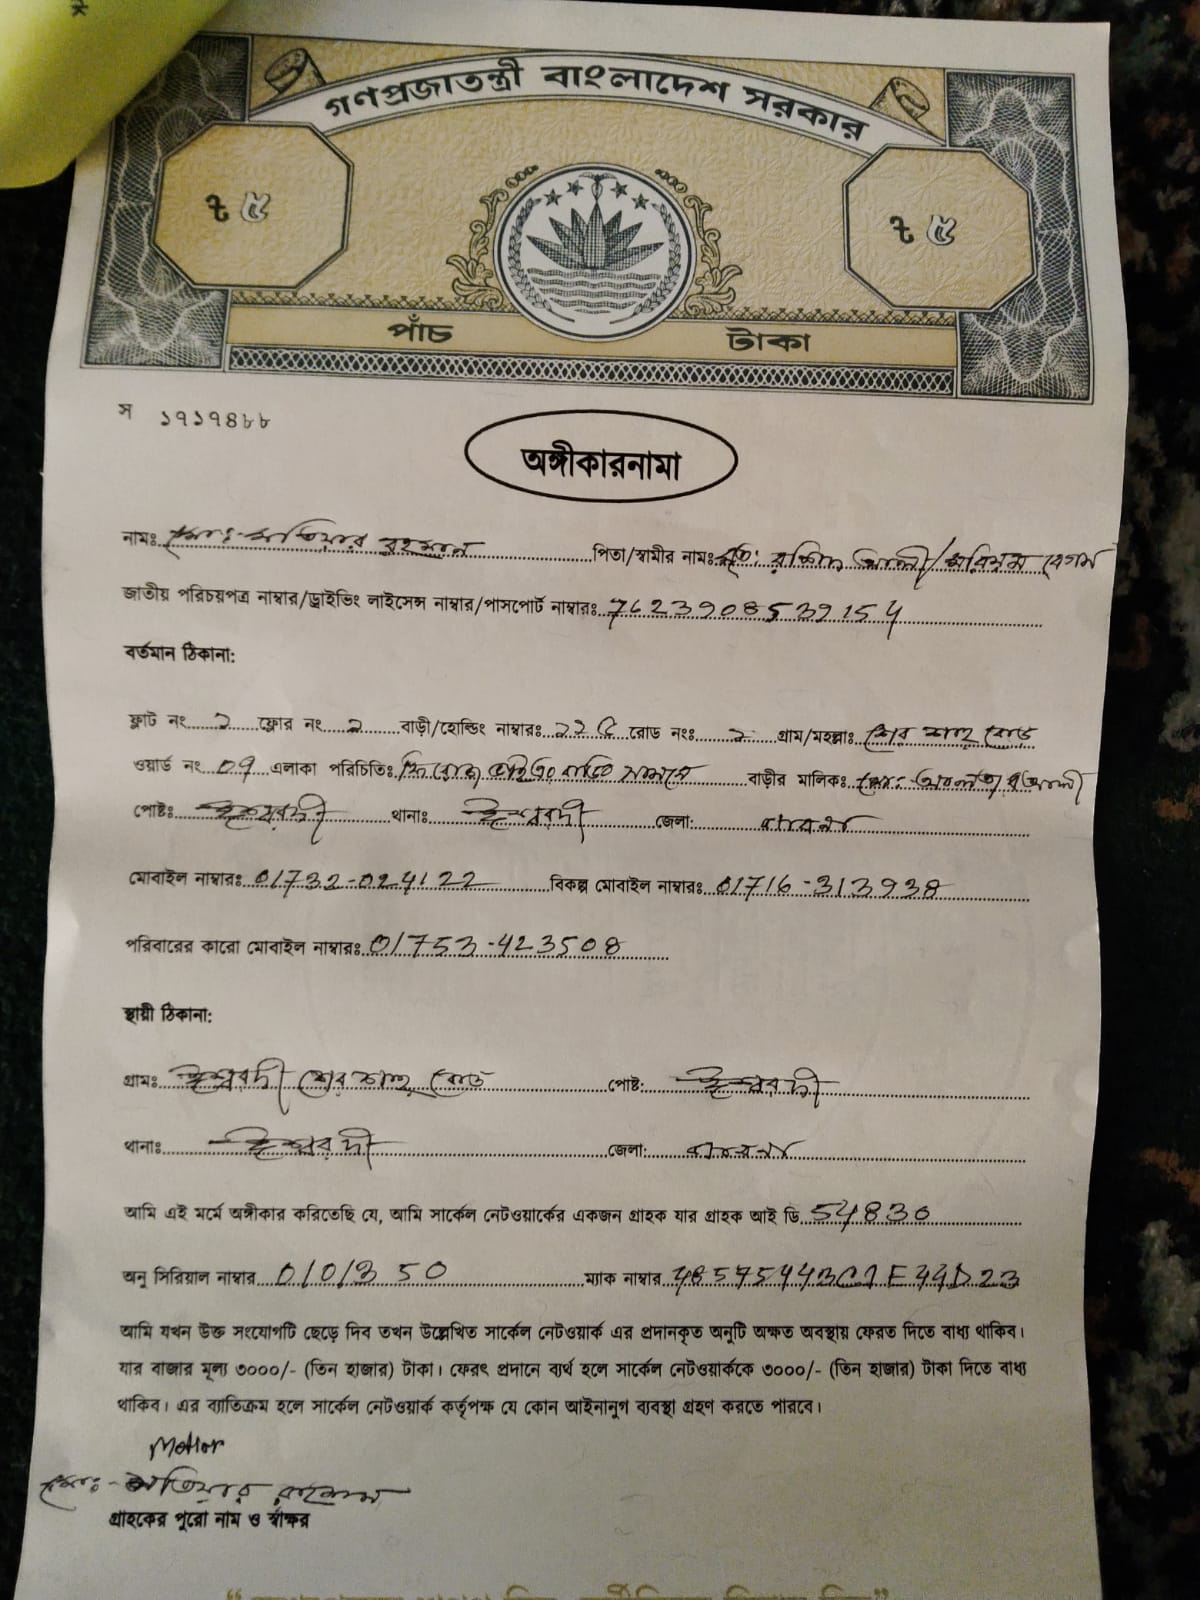 গণপ্রজাতন্ত্রী বাংলাদেশ সরকার
৳ ৫ ৳ ৫
পাঁচ টাকা
স ১৭১৭৪৮৮
অঙ্গীকারনামা
নামঃ মোঃ- মতিয়ার রহমান পিতা/স্বামীর নামঃ মৃতঃ রশিদ আলী/মরিয়ম বেগম
জাতীয় পরিচয়পত্র নাম্বার/ড্রাইভিং লাইসেন্স নাম্বার/পাসপোর্ট নাম্বারঃ 7623908539154
বর্তমান ঠিকানা:
ফ্লাট নং ১ ফ্লোর নং ১ বাড়ী/হোল্ডিং নাম্বারঃ রোড নংঃ ১ গ্রাম/মহল্লাঃ শের শাহ রোড
ওয়ার্ড নং 07 এলাকা পরিচিতিঃ বাড়ির সামনে বাড়ীর মালিকঃ মোঃ
পোষ্টঃ ঈশ্বরদী থানাঃ ঈশ্বরদী জেলা: পাবনা
মোবাইল নাম্বারঃ 01732-024122 বিকল্প মোবাইল নাম্বারঃ 01716-313938
পরিবারের কারো মোবাইল নাম্বারঃ 01753-423508
স্থায়ী ঠিকানা:
গ্রামঃ ঈশ্বরদী শের শাহ রোড পোষ্ট: ঈশ্বরদী
থানাঃ ঈশ্বরদী জেলা: পাবনা
আমি এই মর্মে অঙ্গীকার করিতেছি যে, আমি সার্কেল নেটওয়ার্কের একজন গ্রাহক যার গ্রাহক আই ডি 54830
অনু সিরিয়াল নাম্বার 0101350 ম্যাক নাম্বার 48575443C1E44D23
আমি যখন উক্ত সংযোগটি ছেড়ে দিব তখন উল্লেখিত সার্কেল নেটওয়ার্ক এর প্রদানকৃত অনুটি অক্ষত অবস্থায় ফেরত দিতে বাধ্য থাকিব।
যার বাজার মূল্য ৩০০০/- (তিন হাজার) টাকা। ফেরৎ প্রদানে ব্যর্থ হলে সার্কেল নেটওয়ার্ককে ৩০০০/- (তিন হাজার) টাকা দিতে বাধ্য
থাকিব। এর ব্যাতিক্রম হলে সার্কেল নেটওয়ার্ক কর্তৃপক্ষ যে কোন আইনানুগ ব্যবস্থা গ্রহণ করতে পারবে।
মোঃ- মতিয়ার রহমান
গ্রাহকের পুরো নাম ও স্বাক্ষর